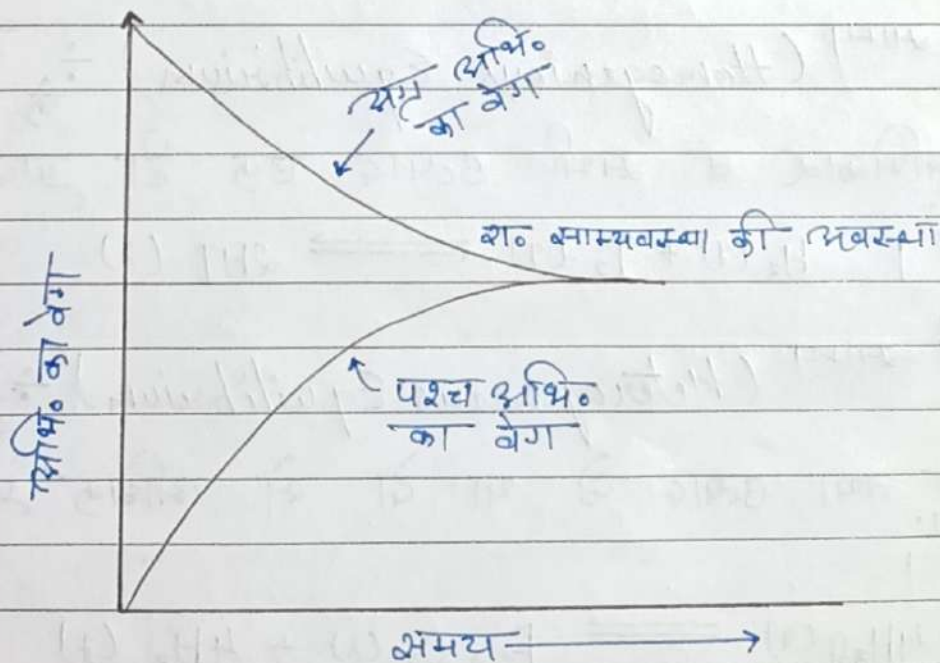 अग्र अभि०
का वेग
रा० साम्यवस्था की अवस्था
पश्च अभि०
का वेग
अभि० का वेग
समय